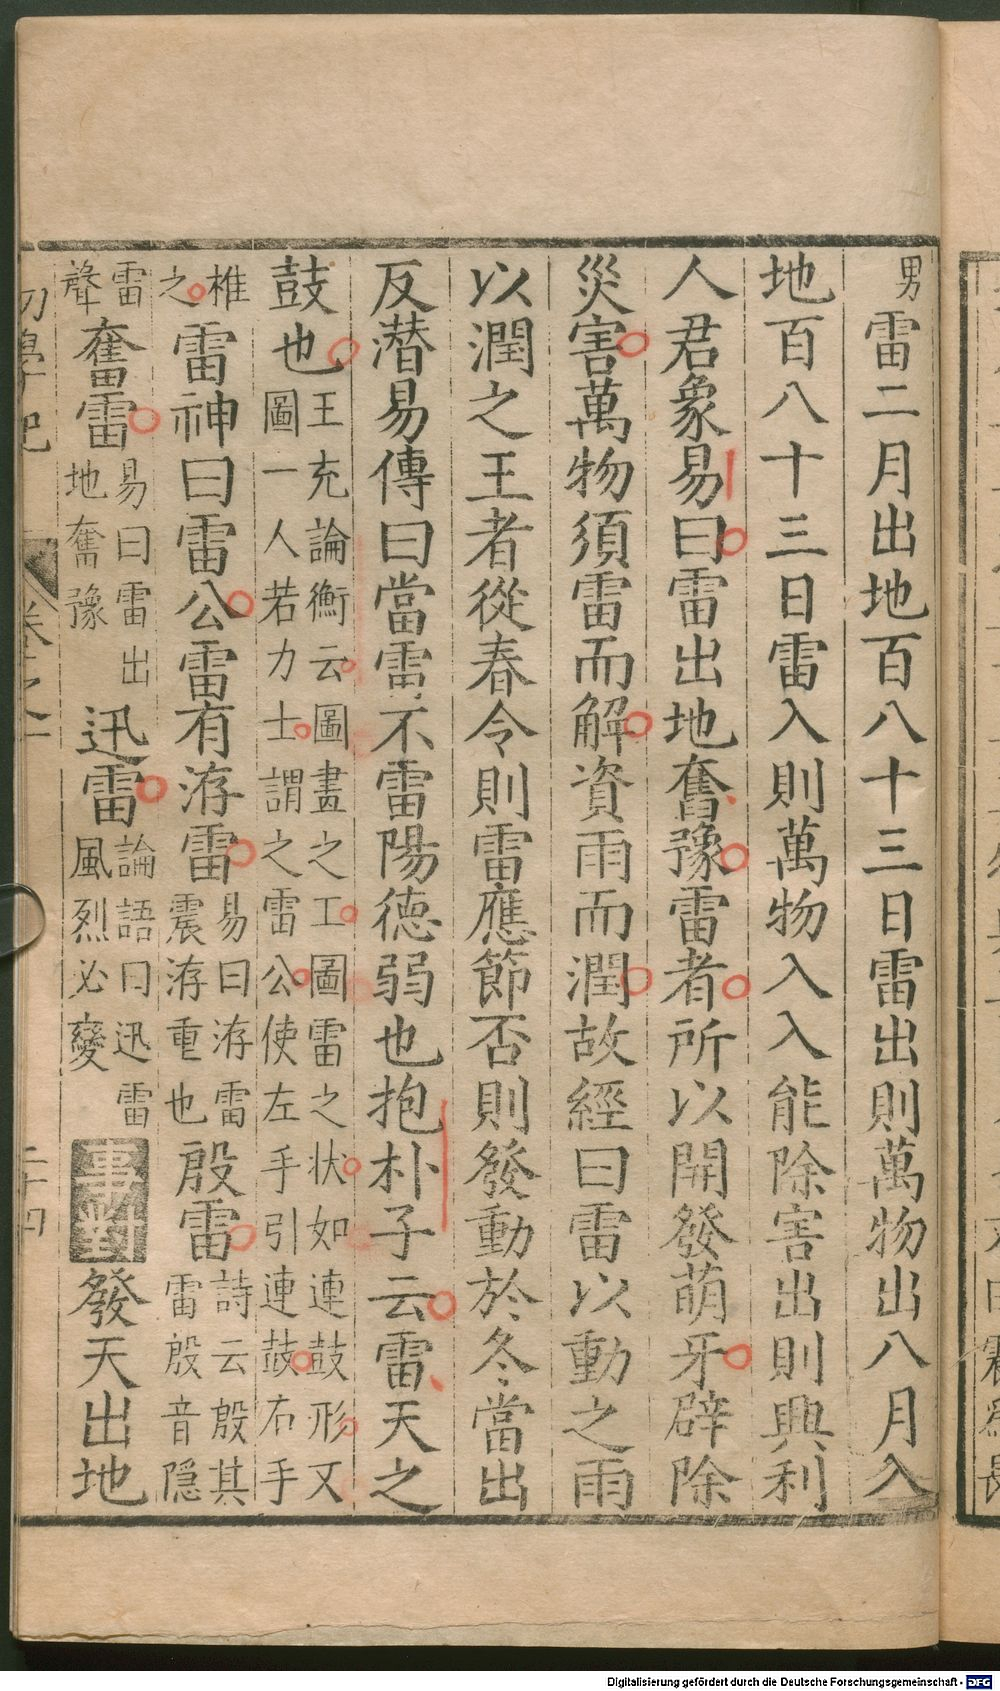 男 雷二月出地百八十三日雷出則萬物出八月入
地百八十三日雷入則萬物入入能除害出則興利
人君象易曰雷出地奮豫雷者所以開發萌牙辟除
災害萬物須雷而解資雨而潤故經曰雷以動之雨
以潤之王者從春令則雷應節否則發動於冬當出
反潛易傳曰當雷不雷陽德弱也抱朴子云雷天之
鼓也 王充論衡云圖畫之工圖雷之狀如連鼓形又
圖一人若力士謂之雷公使左手引連鼓右手
椎
之 雷神曰雷公雷有洊雷 易曰洊雷
震洊重也 殷雷 詩云殷其
雷殷音隱
雷
聲 奮雷 易曰雷出
地奮豫 迅雷 論語曰迅雷
風烈必變 事對 發天出地
初學記 卷之一 二十四
Digitalisierung gefördert durch die Deutsche Forschungsgemeinschaft - DFG